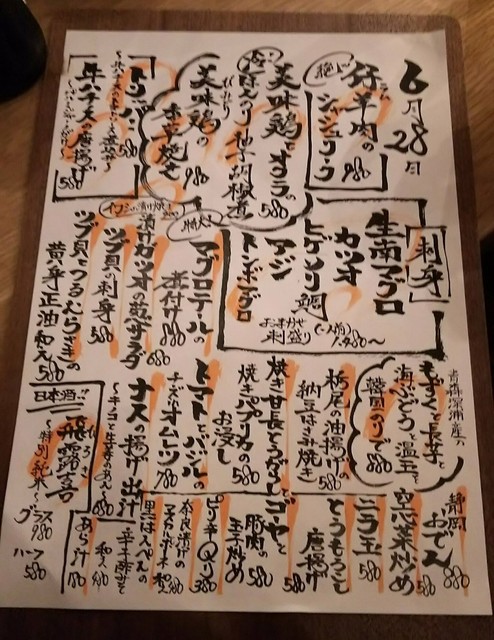 6月28日
仔羊肉の
ジャジューク
980
美味鶏とオクラの
柚子胡椒煮
580
美味鶏の
赤草焼き
980
トリレバー
580
牛ハチノスの唐揚げ
580
刺身
生南マグロ
カツオ
ヒゲソリ鯛
アジ
トンボマグロ
おまかせ
刺盛り
(一人前)
1,480〜
特大
マグロテールの
煮付け
880
漬けカツオの韮サラダ
680
ツブ貝の刺身
580
ツブ貝とつるむらさきの
黄身正油和え
580
もずくと長芋と
海ぶどうと温玉と
韓国のりで
880
栃尾の油揚げ
納豆はさみ焼き
580
焼き甘長とうがらしと
焼きパプリカの
お浸し
580
トマトとバジルの
チーズオムレツ
780
ナスの揚げ出汁
〜キノコと生姜のあんで〜
580
日本酒
飛露喜
〜特別純米〜
グラス
980
ハーフ
580
静岡
おでん
880
空心菜炒め
580
ニラ玉
580
とうもろこし
唐揚げ
580
ゴヤと
豚肉の
玉子炒め
580
ピリ辛Qり
380
奈良漬けの
マスカルポーネ和え
黒はんぺんの
辛子酢みそ
和え
あら汁
180